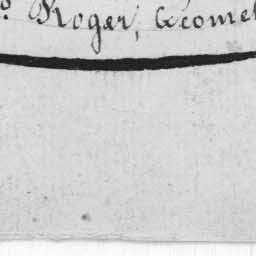 Roger, Geomet